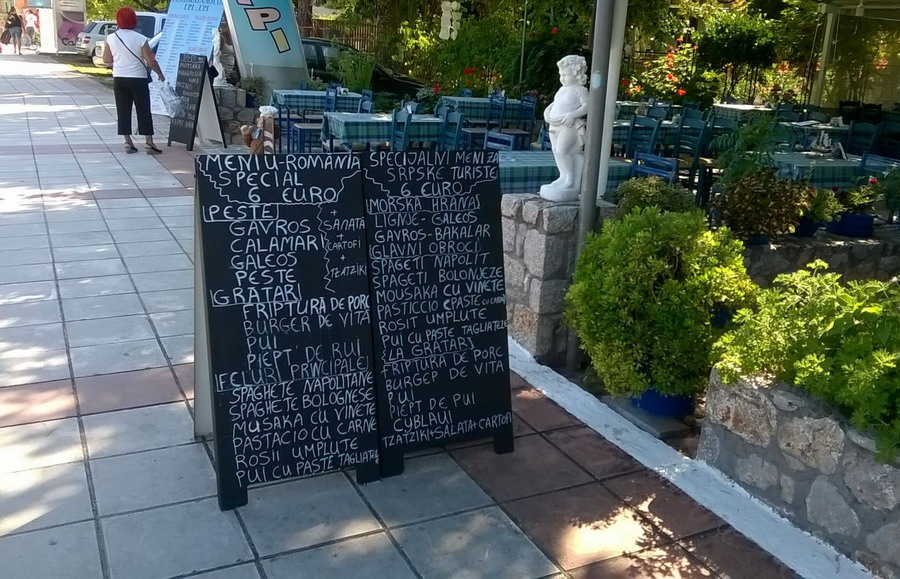 MENIU-ROMÂNIA
SPECIAL
6 EURO
[PEȘTE]
GAVROS
CALAMARI
GALEOS
PEȘTE
+
SANATA
+
CARTOFI
+
TZATZIKI
[GRATAR]
FRIPTURA DE PORC
BURGER DE VITA
PUI
PIEPT DE RUI
[FELUSI PRNCIPALE]
SPAGHETE NAPOLITANE
SPAGHETE BOLOGNESE
MUSAKA CU VINETE
PASTACIO CU CARNE
ROSII UMPLUTE
PUI CU PASTE TAGLIATE
SPECIJALNI MENI ZA
SRPSKE TURISTE
6 EURO
[MORSKA HRANA]
LIGNJE-GALEOS
GAVROS-BAKALAR
GLAVNI OBROCI
SPAGETI NAPOLIT
SPAGETI BOLONJEZE
MOUSAKA CU VINETE
PASTICCIO CPASTE CU CARNE
ROSIT UMPLUTE
PUI CU PASTE TAGLIATELE
[LA GRATAR]
FRIPTURA DE PORC
BURGER DE VITA
PUI
PIEPT DE PUI
CYBLAUI
TZATZIKI+SALATA+CARTOFI
ΓPI